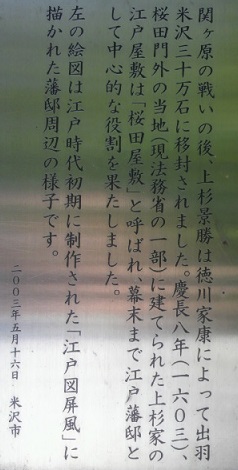 関ヶ原の戦いの後、上杉景勝は徳川家康によって出羽
米沢三十万石に移封されました。慶長八年(一六〇三)、
桜田門外の当地(現法務省の一部)に建てられた上杉家の
江戸屋敷は「桜田屋敷」と呼ばれ、幕末まで江戸藩邸と
して中心的な役割を果たしました。
左の絵図は江戸時代初期に制作された「江戸図屏風」に
描かれた藩邸周辺の様子です。
二〇〇三年五月十六日 米沢市